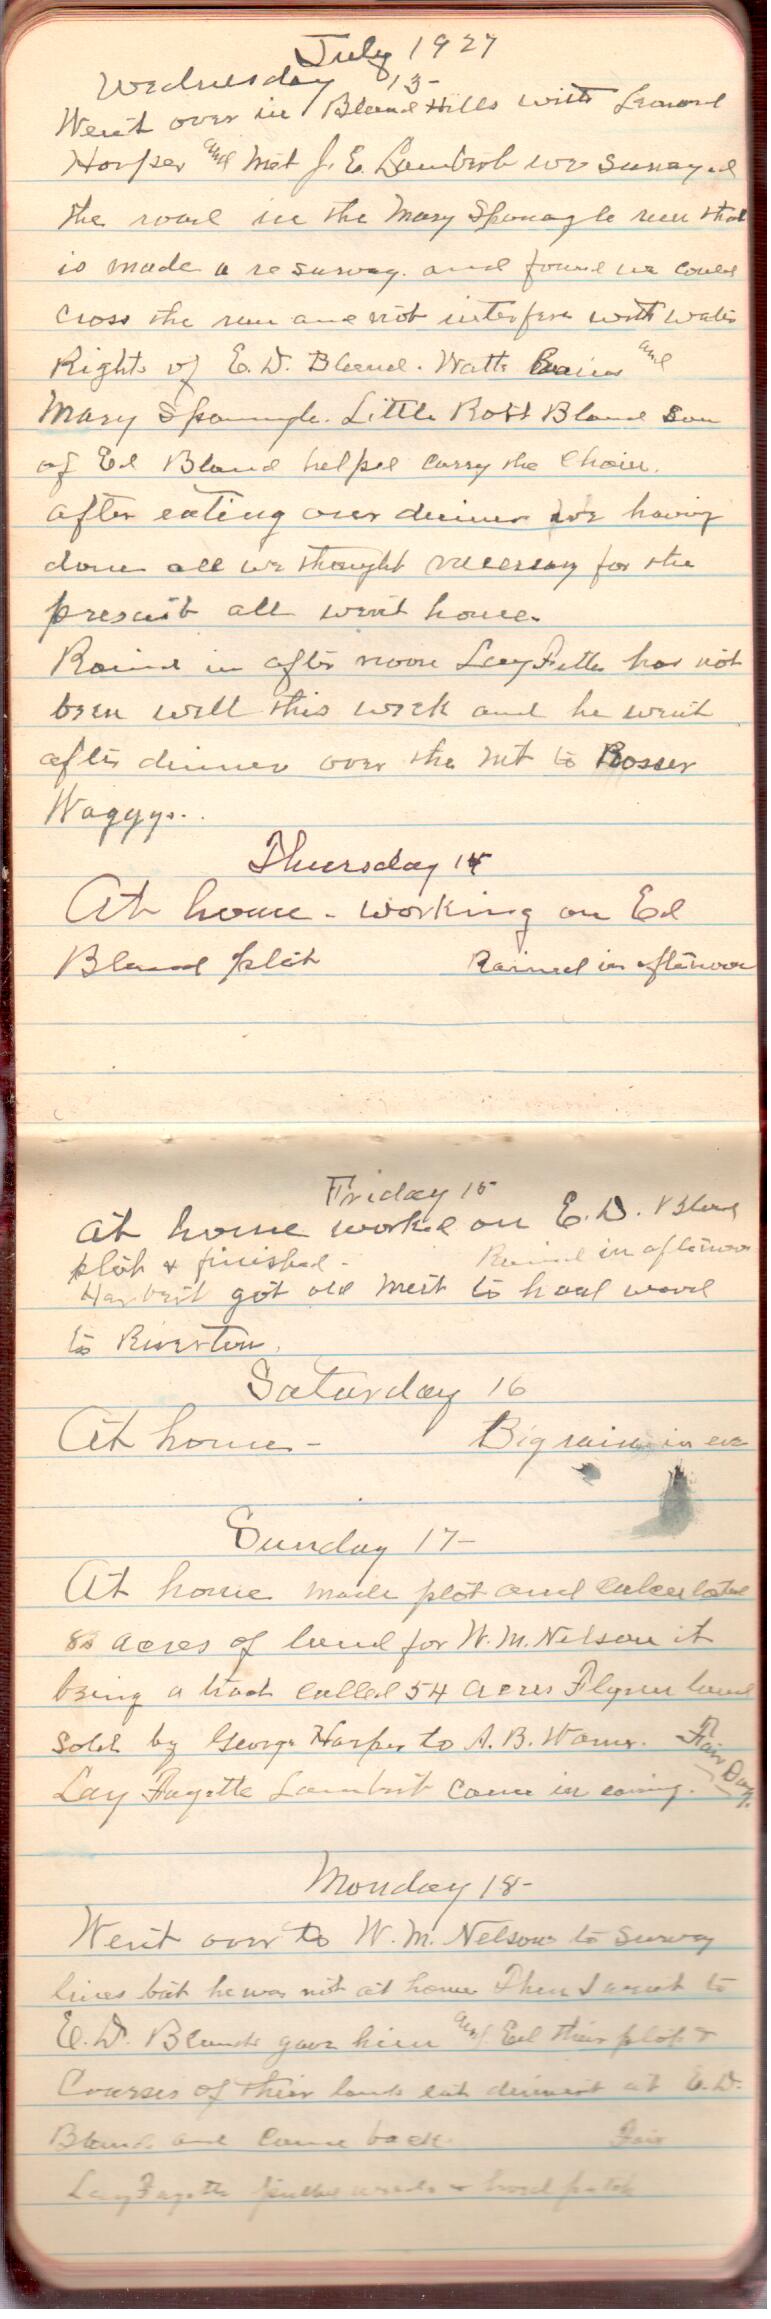 July 1927
Wednesday 13-
Went over in Bland Hills with Leonard
Harper and Met J. E. Lambert we surveyed
the road in the Mary Sponaugle run that
is made a resurvey. and found we could
cross the run and not interfere with water
Rights of E. D. Bland. Watts and
Mary Sponaugle. Little Bland son
of Ed Bland helped carry the chain.
after eating our dinner we having
done all we thought necessary for the
present all went home.
Raind in after noon Lay Fette has not
been well this week and he went
after dinner over the Mt to Rosser
Waggys.
Thursday 14
At home - working on Ed
Bland plot Rained in afternoon
Friday 15
at home worked on E. D. Bland
plot & finished - Rained in afternoon
got old to haul wood
to Riverton.
Saturday 16
At home - Big rain in eve
Sunday 17-
At home made plot and calculated
acres of land for W. M. Nelson it
being a tract called 54 acres Flynn land
sold by George Harper to A. B. Warner. Fair Day.
Lay Fayette Lambert came in evning.
Monday 18-
Went over to W. M. Nelsons to survey
lines but he was not at home Then I went to
E. D. Blands gave him and Ed their plot &
Courses of their land eat dinner at E. D.
Blands and came back Fair
Lay Fayette weeds